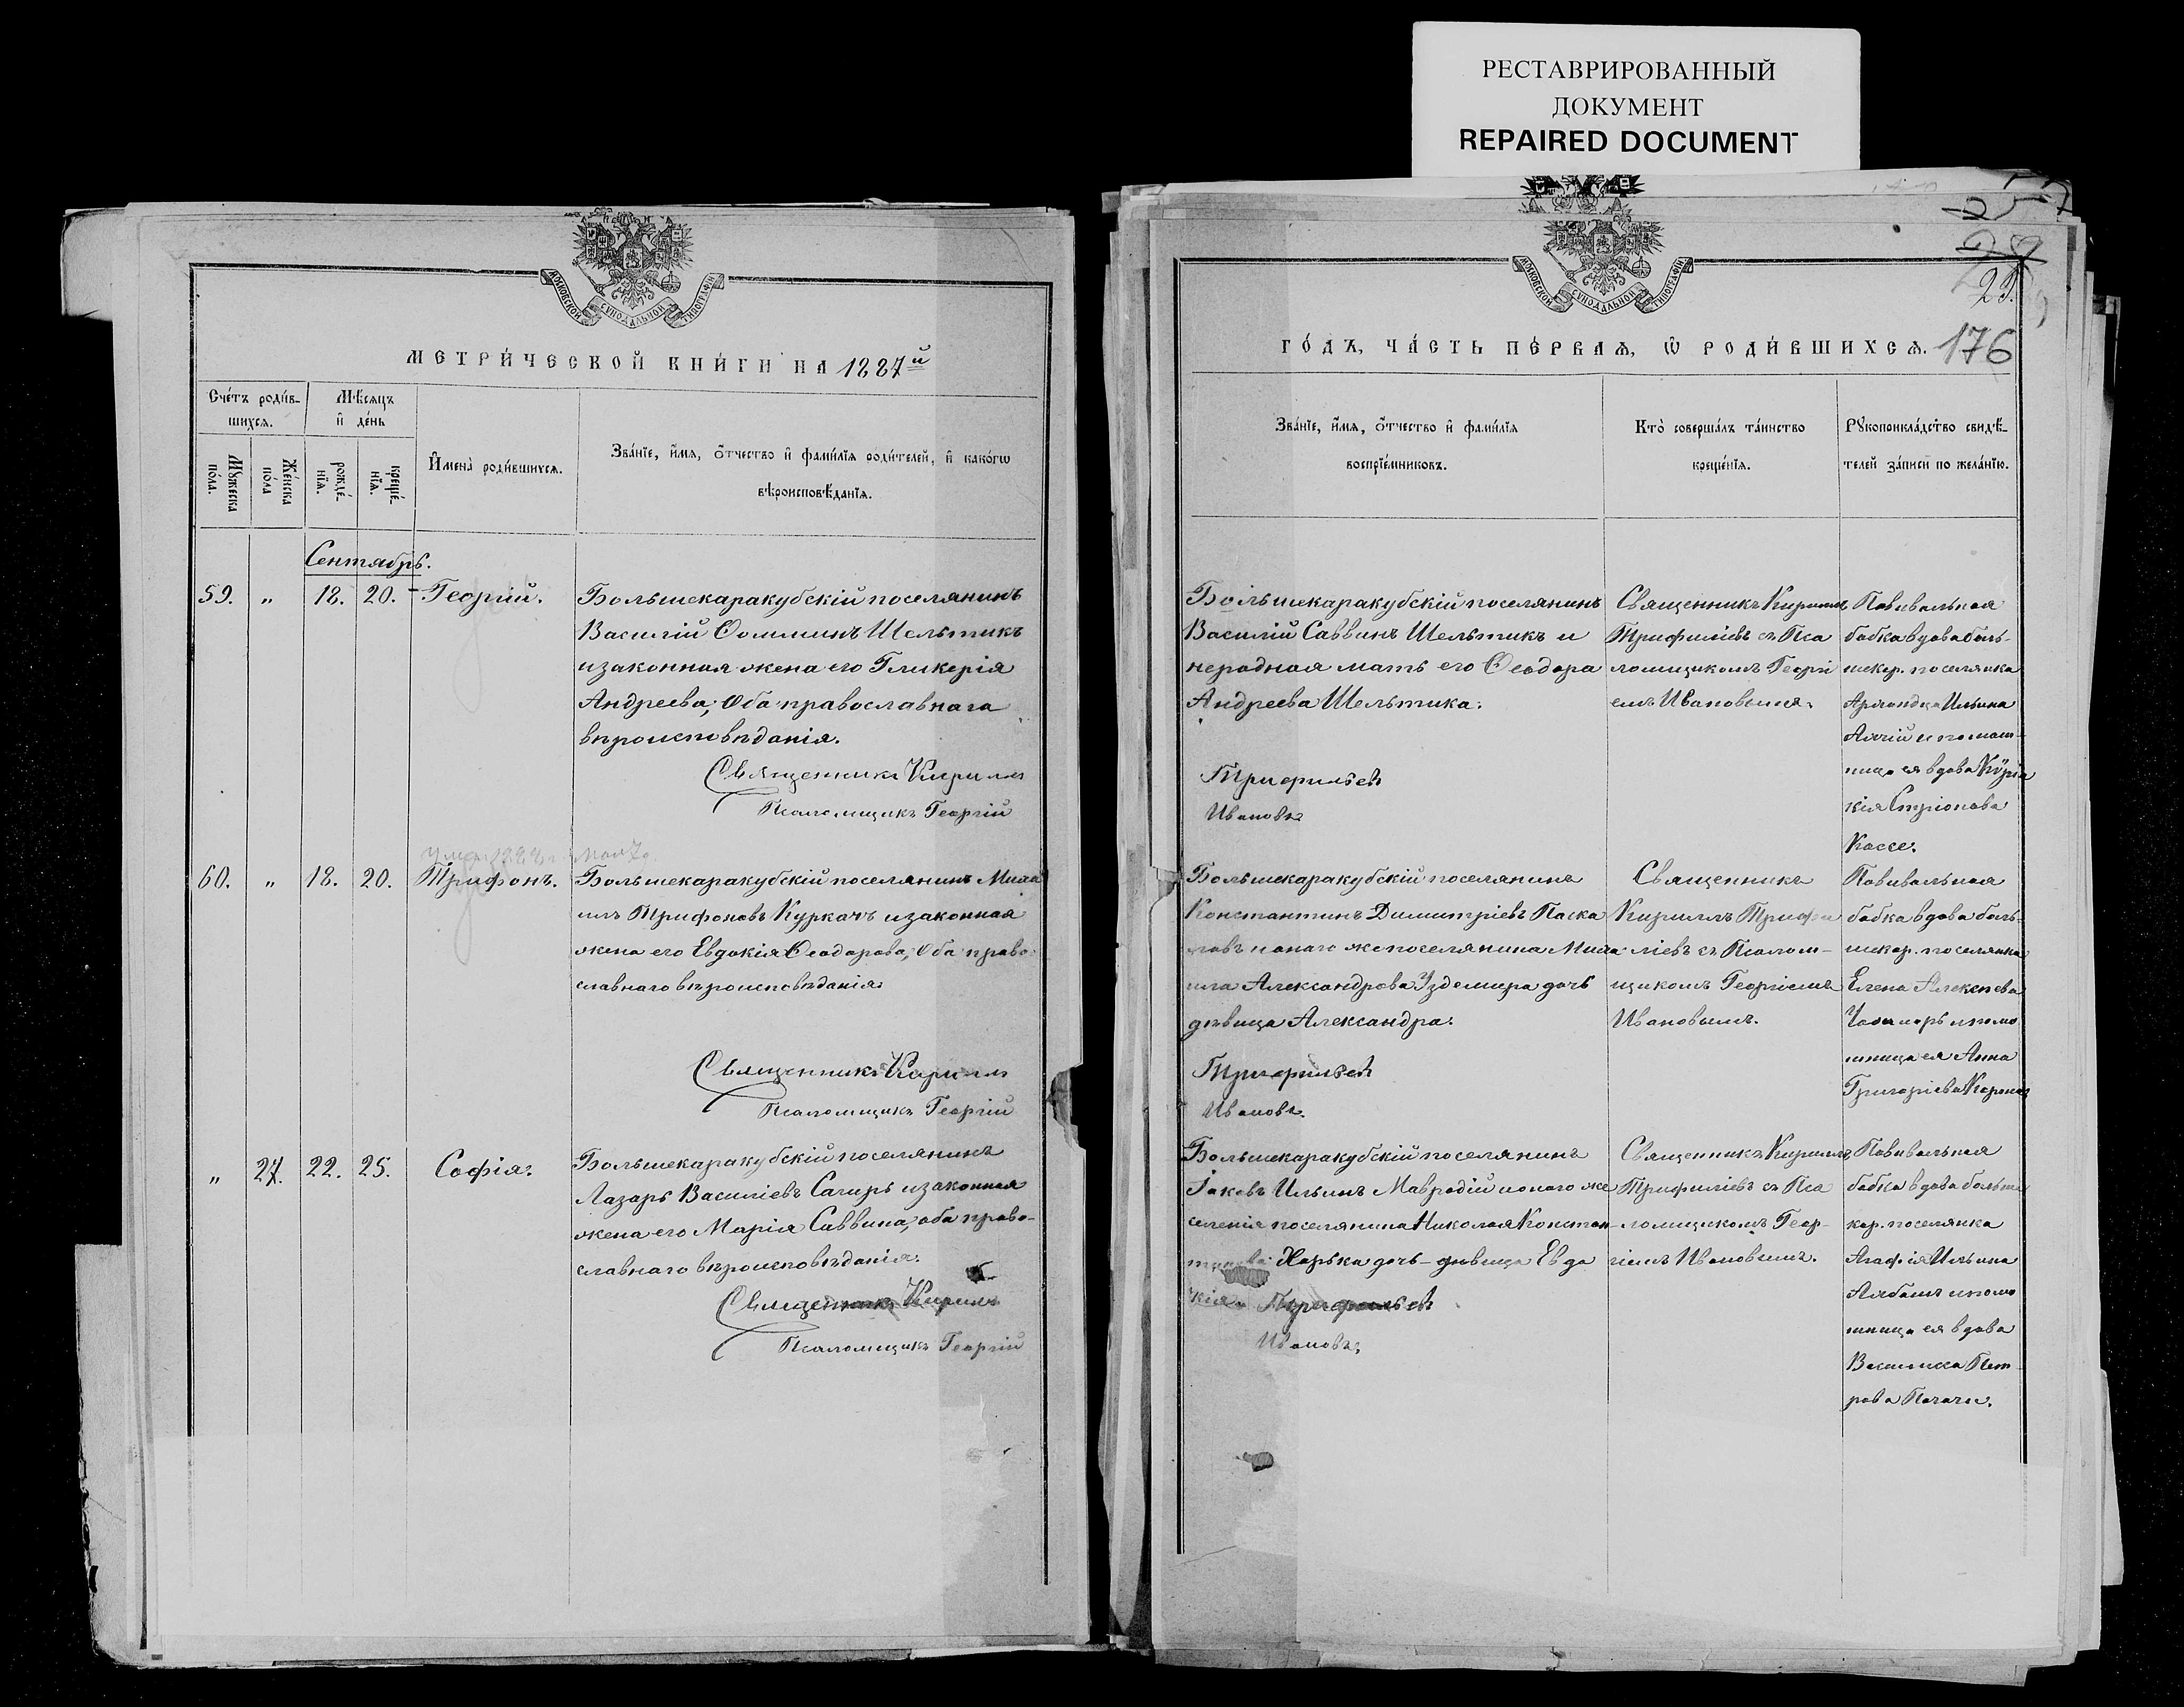 РЕСТАВРИРОВАННЫЙ
ДОКУМЕНТ
REPAIRED DOCUMENT
МОСКОВСКОЙ СѴНОДАЛЬНОЙ ТИПОГРАФІИ
МЕТРИ́ЧЕСКОЙ КНИ́ГИ НА 1887й
Сче́тъ роди́в-
шихся.
Мѣ́сяцъ
и҆ де́нь
Мꙋ́жеска
по́ла.
Же́нска
по́ла
рожде́-
нїѧ.
креще́-
нїѧ.
И҆мена̀ роди́вшихсѧ.
Зва́нїе, и҆́мѧ, ѻ҆́тчество и҆ фами́лїѧ роди́телей, и҆ како́гѡ
вѣроисповѣ́данїѧ.
Сентябрь.
59. „ 18. 20. Георгій.
Большекаракубскій поселянинъ
Василій Ѳоминъ Шельтикъ
и законная жена его Гликерія
Андреева; Оба православнаго
вѣроисповѣданія.
Священникъ Кириллъ
Псаломщикъ Георгій
60. „ 18. 20. Трифонъ.
Большекаракубскій поселянинъ Миха
илъ Трифоновъ Куркачъ и законная
жена его Евдокія Ѳеодорова, Оба право
славнаго вѣроисповѣданія.
Священникъ Кириллъ
Псаломщикъ Георгій
„ 27. 22. 25. Софія.
Большекаракубскій поселянинъ
Лазарь Василіевъ Сагиръ и законная
жена его Марія Саввина, оба право-
славнаго вѣроисповѣданія.
Священникъ Кириллъ
Псаломщикъ Георгій
МОСКОВСКОЙ СѴНОДАЛЬНОЙ ТИПОГРАФІИ
29.
ГО́ДЪ, ЧА́СТЬ ПЕ́РВАѦ, Ѡ҆ РОДИ́ВШИХСѦ. 176
Зва́нїе, и҆́мѧ, ѻ҆́тчество и҆ фами́лїѧ
воспрїе́мниковъ.
Кто̀ соверша́лъ та́инство
креще́нїѧ.
Рꙋкоприкла́дство свидѣ́-
телей за́писи по жела́нїю.
Большекаракубскій поселянинъ
Василій Саввинъ Шельтикъ и
неродная мать его Ѳеодора
Андреева Шельтика.
Трифильев
Ивановъ
Священникъ Кириллъ
Трифиліевъ съ Пса
ломщикомъ Георгі
емъ Ивановымъ.
Повивальная
бабка вдова боль-
шекар. поселянка
Ильина
вдова
Кассе.
Большекаракубскій поселянинъ
Константинъ Димитріевъ Паска
ловъ и онаго же поселянина Миха
ила Александрова Уздемира дочь
дѣвица Александра.
Трифильев
Ивановъ.
Священникъ
Кириллъ Трифи
ліевъ съ Псалом-
щикомъ Георгіемъ
Ивановымъ.
Повивальная
бабка вдова боль-
шекар. поселянка
Елена Алексѣева
и помо
шница ея Анна
Григоріева
Большекаракубскій поселянинъ
Іаковъ Ильинъ Мавродій и онаго же
селенія поселянина Николая Констан-
Харька дочь - дѣвица Евдо
кія.
Трифильев
Ивановъ.
Священникъ Кириллъ
Трифиліевъ съ Пса
ломщикомъ Геор-
гіемъ Ивановымъ.
Повивальная
бабка вдова больше
кар. поселянка
Агафія Ильина
и помо
шница ея вдова
Василиса Пет-
рова